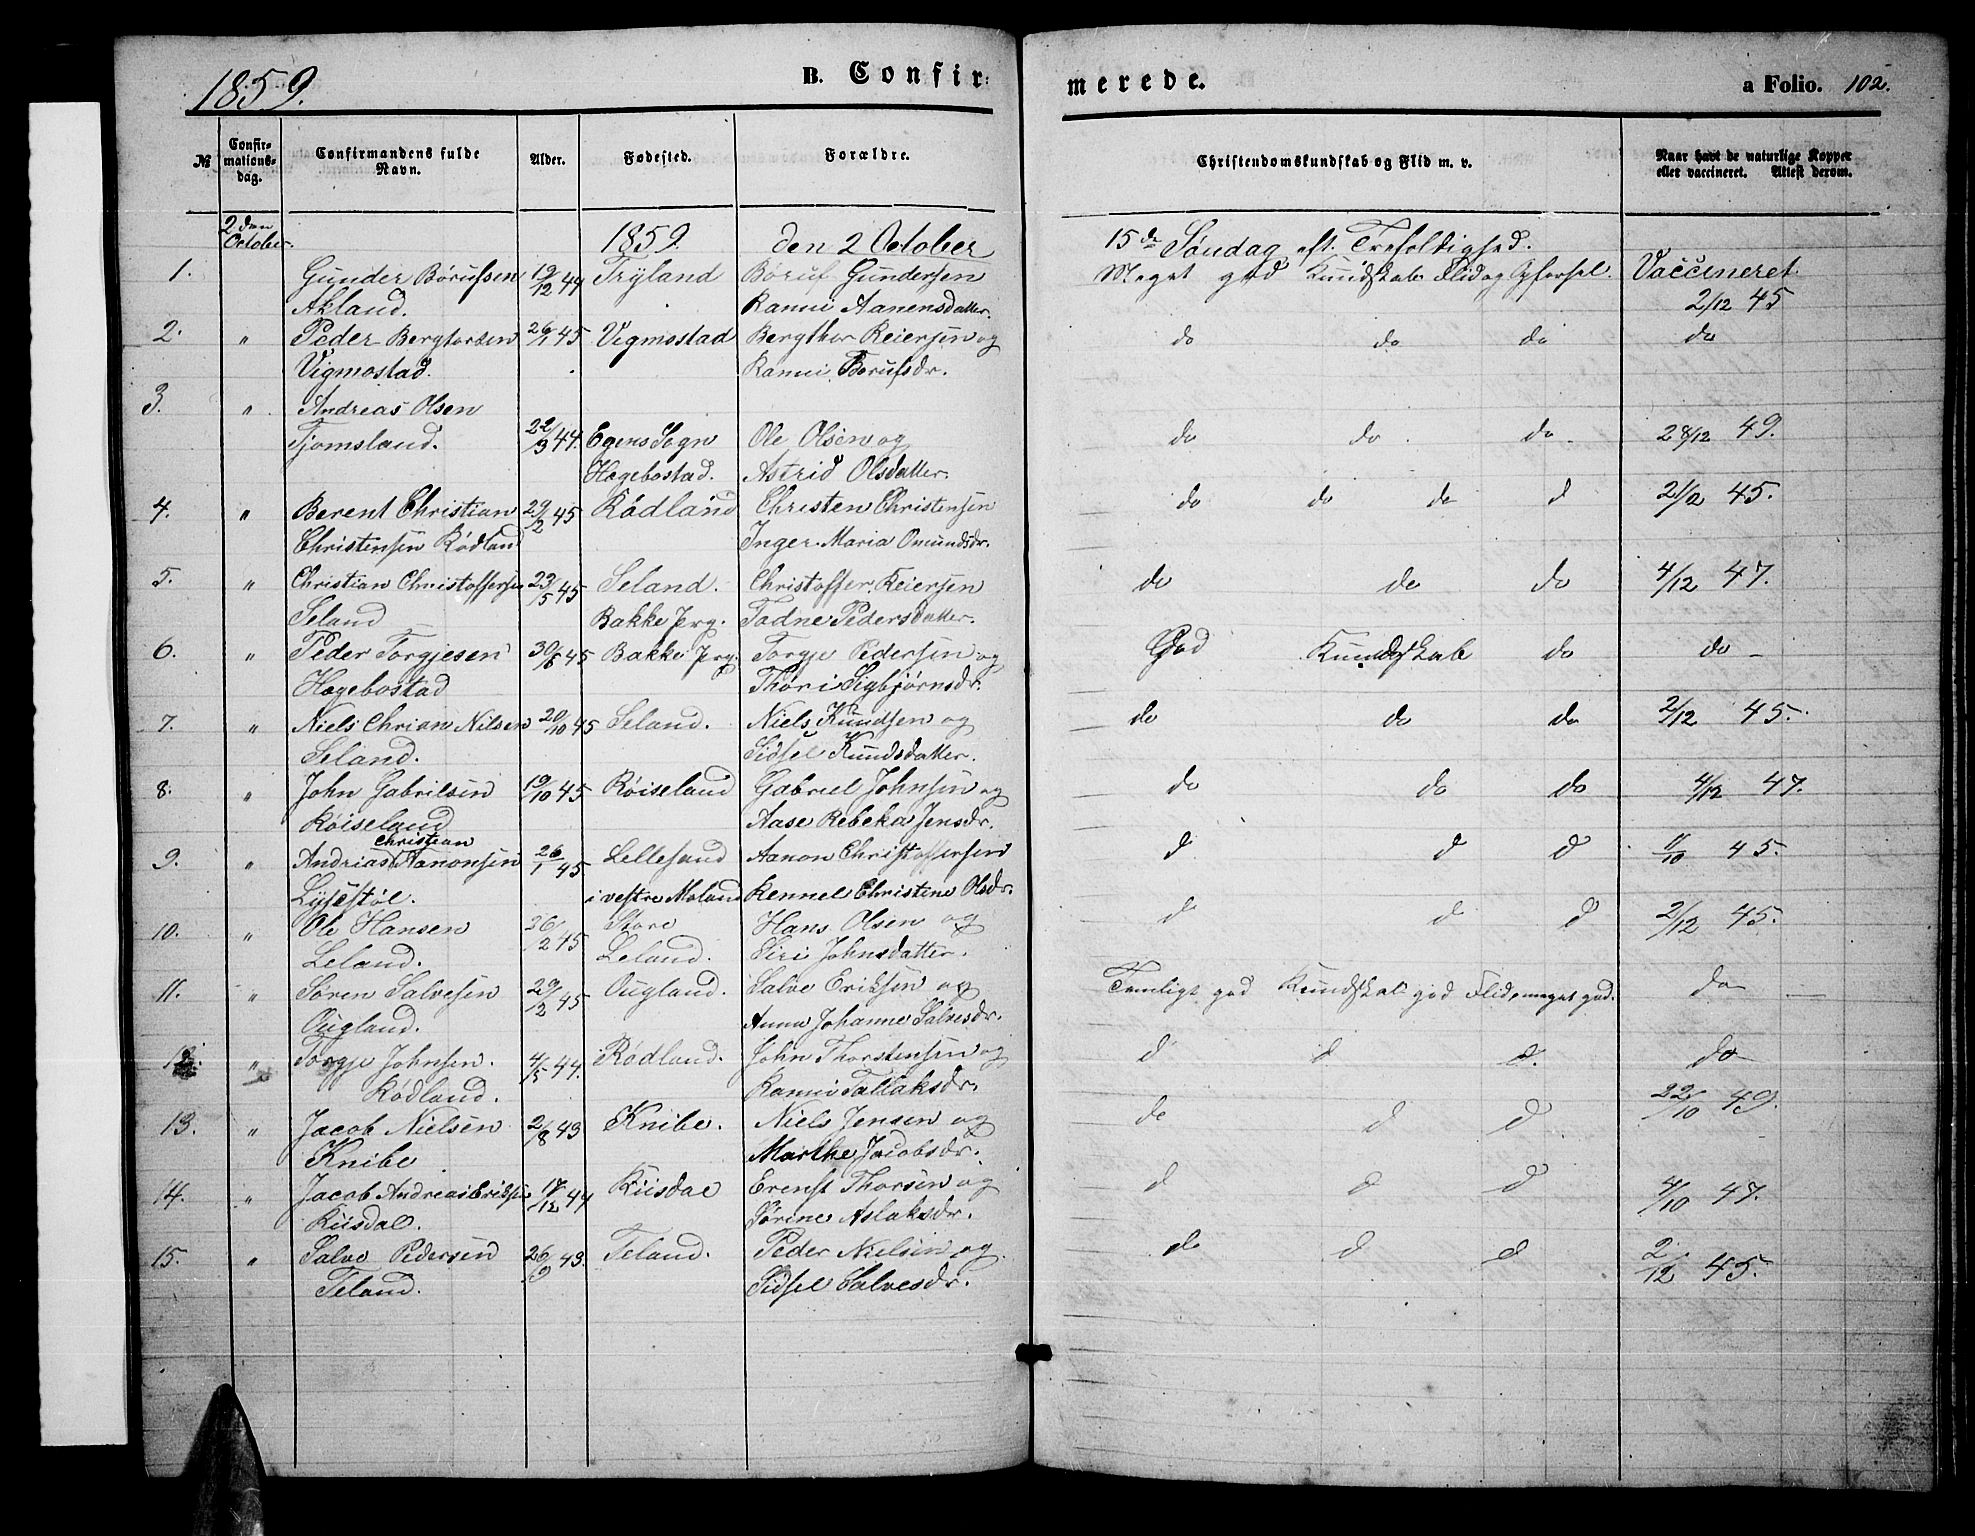 1859.
B. Confir:
merede.
a Folio. 102.
№
Confir-
mations-
dag.
Confirmandens fulde
Navn.
Alder.
Fødested.
Forældre.
Christendomskundskab og Flid m. v.
Naar havt de naturlige Kopper
eller vaccineret. Attest derom.
2den
October.
1859. den 2 October
15de Søndag eft. Trefoldighed.
1. Gunder Børufsen 19/12 44 Tryland Børuf Gundersen Meget god Kundskab Flid og Opførsel. Vaccineret
Akland. Ranni Aanensdatter. 2/12 45
2. " Peder Bergtorsen 26/1 45 Vigmostad Bergthor Reiersen og do do do do
Vigmostad. Ranni Børufsdr.
3. " Andreas Olsen
Tjomsland. 22/3 44. Egens Sogn Ole Olsen og do do. do. 28/12 49.
Hægebostad. Astrid Olsdatter.
4. " Berent Christian 29/2 45 Rødland Christen Christensen do do do d 2/12 45.
Christensen Rødland Inger Maria Omundsdr.
5. " Christian Christoffersen 23/5 45 Seland. Christoffer Reiersen do do do 4/12 47.
Seland Bakke Prg. Tadne Pedersdatter.
6. " Peder Torgjesen 30/5 45 Bakke Prg. Torgje Pedersen og God Kundskab do do
Hægebostad Thøri Sigbjørnsdr.
7. " Niels Chrian Nilsen 20/10 45 Seland. Niels Knudsen og do do do 2/12 45.
Seland. Sidsel Knudsdatter.
8. " John Gabrilsen 19/10 45 Røiseland Gabriel Johnsen og do do do 4/12 47.
Røiseland Aase Rebeka Jensdr.
Christian
9. " Andreas Aanonsen 26/1 45 Lillesand Aanon Christoffersen d d d 11/10 45.
Lysestøl. i vestre Moland Kennel Christine Olsdr.
10. " Ole Hansen 26/2 45 Store Hans Olsen og d d d 2/12 45.
Leland. Leland. Siri Johnsdatter.
11. " Søren Salvesen 29/2 45 Ougland. Salve Eriksen og Temligt god Kundskab god Flid meget god. do
Ougland. Anna Johanne Salvesdr.
12. " Torgje Johnsen. 4/5 44. Rødland. John Thorstensen og d d d. do
Rødland. Ranni Tallaksdr.
13. " Jacob Nielsen 2/8 43 Knibe. Niels Jensen og do d d 22/10 49.
Knibe Marthe Jacobsdr.
14. " Jacob Andreas 17/12 44 Kiisdal Erenst Thorsen og d d d 4/10 47.
Kiisdal. Sørine Aslaksdr.
15. " Salve Pedersen 26/9 43. Teland. Peder Nielsen og do d d 2/12 45.
Teland. Sidsel Salvesdr.